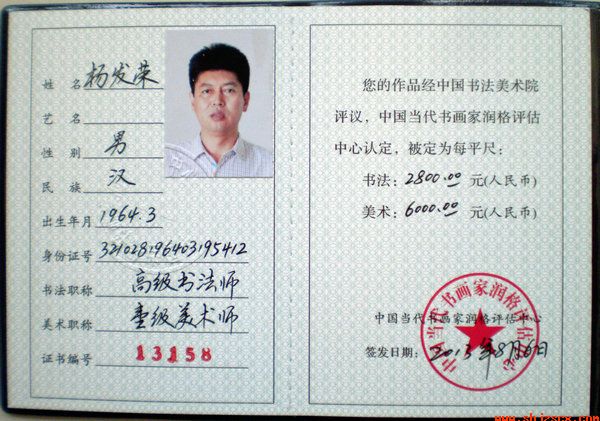 姓 名 杨发荣
艺 名
性 别 男
民 族 汉
出生年月 1964.3
身份证号 321028196403195412
书法职称 高级书法师
美术职称 壹级美术师
证书编号 13158
您的作品经中国书法美术院
评议，中国当代书画家润格评估
中心认定，被定为每平尺：
书法：2800.00 元(人民币)
美术：6000.00 元(人民币)
中国当代书画家润格评估中心
签发日期：2013年8月6日
中国当代书画家润格评估中心